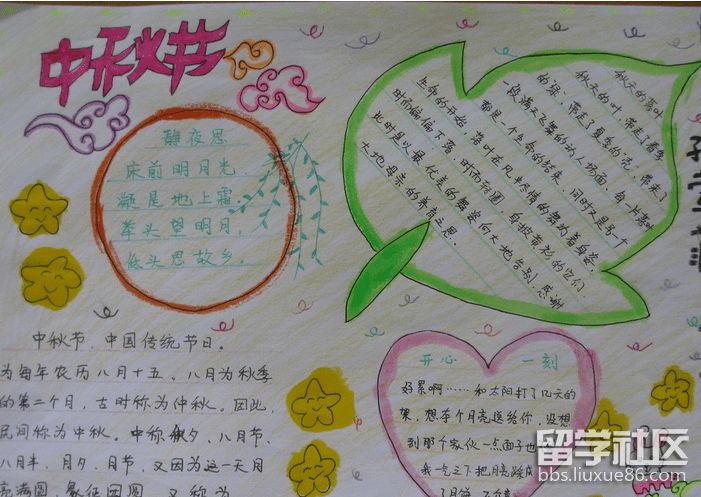 中秋节
静夜思
床前明月光,
凝是地上霜.
拳头望明月,
低头思故乡.
秋天的落叶
秋天的叶,带走了春季
的绿、带走了夏季的亮,带来了
一段满天飞舞的动人场面、每一片落叶
都是一个生命的结束,同时又是另一个
生命的开始,落叶在风中尽情的舞动着身姿,
时而偏偏下落,时而 身披黄彩的它们,
此时是以最优美的舞姿向大地告别,感谢
大地母亲的养育之恩.
中秋节,中国传统节日。
为每年农历八月十五、八月为秋季
的第二个月,古时称为仲秋。因此,
民间称为中秋。中称 夕、八月节、
八月半,月夕、月节,又因为这一天月
亮满圆,象征团圆,又称为
开心 一刻
好累啊……和太阳打了几天的
架,想弄个月亮送给你,没想
到那个家伙一点面子也
我一气之下把月亮踩成
了月饼,
留学社区
bbs.liuxue86.com